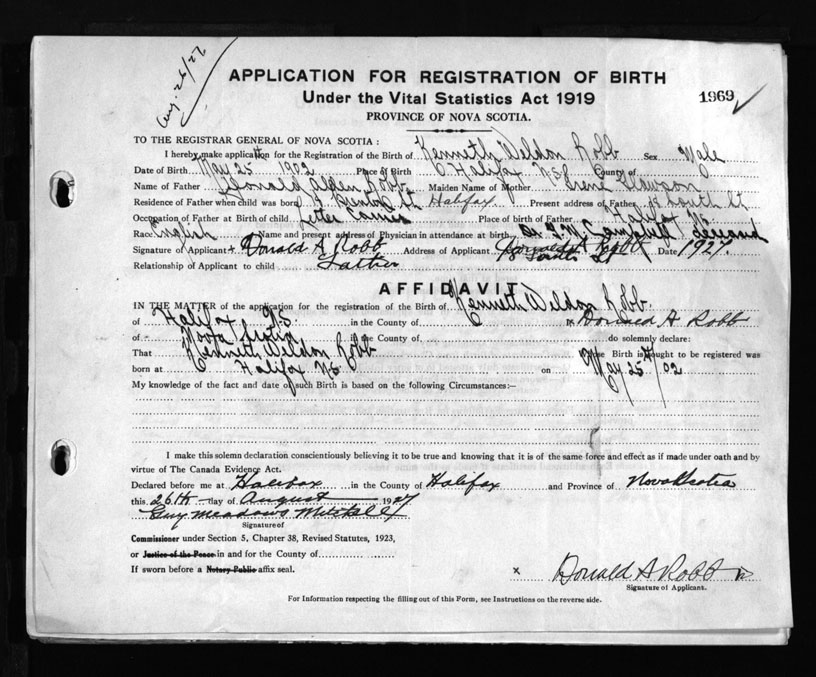 Aug. 26/27
APPLICATION FOR REGISTRATION OF BIRTH
Under the Vital Statistics Act 1919
1969
PROVINCE OF NOVA SCOTIA.
TO THE REGISTRAR GENERAL OF NOVA SCOTIA :
I hereby make application for the Registration of the Birth of Kenneth Weldon Robb Sex Male
Date of Birth May 25 1902 Place of Birth Halifax N.S. County of
Name of Father Donald Robb Maiden Name of Mother Irene
Residence of Father when child was born Halifax Present address of Father South St
Occupation of Father at Birth of child Letter Carrier Place of birth of Father Halifax N.S.
Race English Name and present address of Physician in attendance at birth Campbell
Signature of Applicant Donald A Robb Address of Applicant South St Date 1927.
Relationship of Applicant to child Father
AFFIDAVIT
IN THE MATTER of the application for the registration of the Birth of Kenneth Weldon Robb.
of Halifax N.S. in the County of Donald A Robb
of Nova Scotia in the County of do solemnly declare:
That Kenneth Weldon Robb whose Birth is sought to be registered was
born at Halifax N.S. on May 25th/02
My knowledge of the fact and date of such Birth is based on the following Circumstances:—
I make this solemn declaration conscientiously believing it to be true and knowing that it is of the same force and effect as if made under oath and by
virtue of The Canada Evidence Act.
Declared before me at Halifax in the County of Halifax and Province of Nova Scotia
this 26th day of August 1927
Guy Meadows Mitchell
Signature of
Commissioner under Section 5, Chapter 38, Revised Statutes, 1923,
or Justice of the Peace in and for the County of
If sworn before a Notary Public affix seal.
x Donald A Robb
Signature of Applicant.
For Information respecting the filling out of this Form, see Instructions on the reverse side.